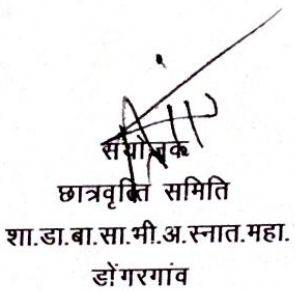 संयोजक
छात्रवृत्ति समिति
शा.डा.बा.सा.भी.अ.स्नात.महा.
डोंगरगांव